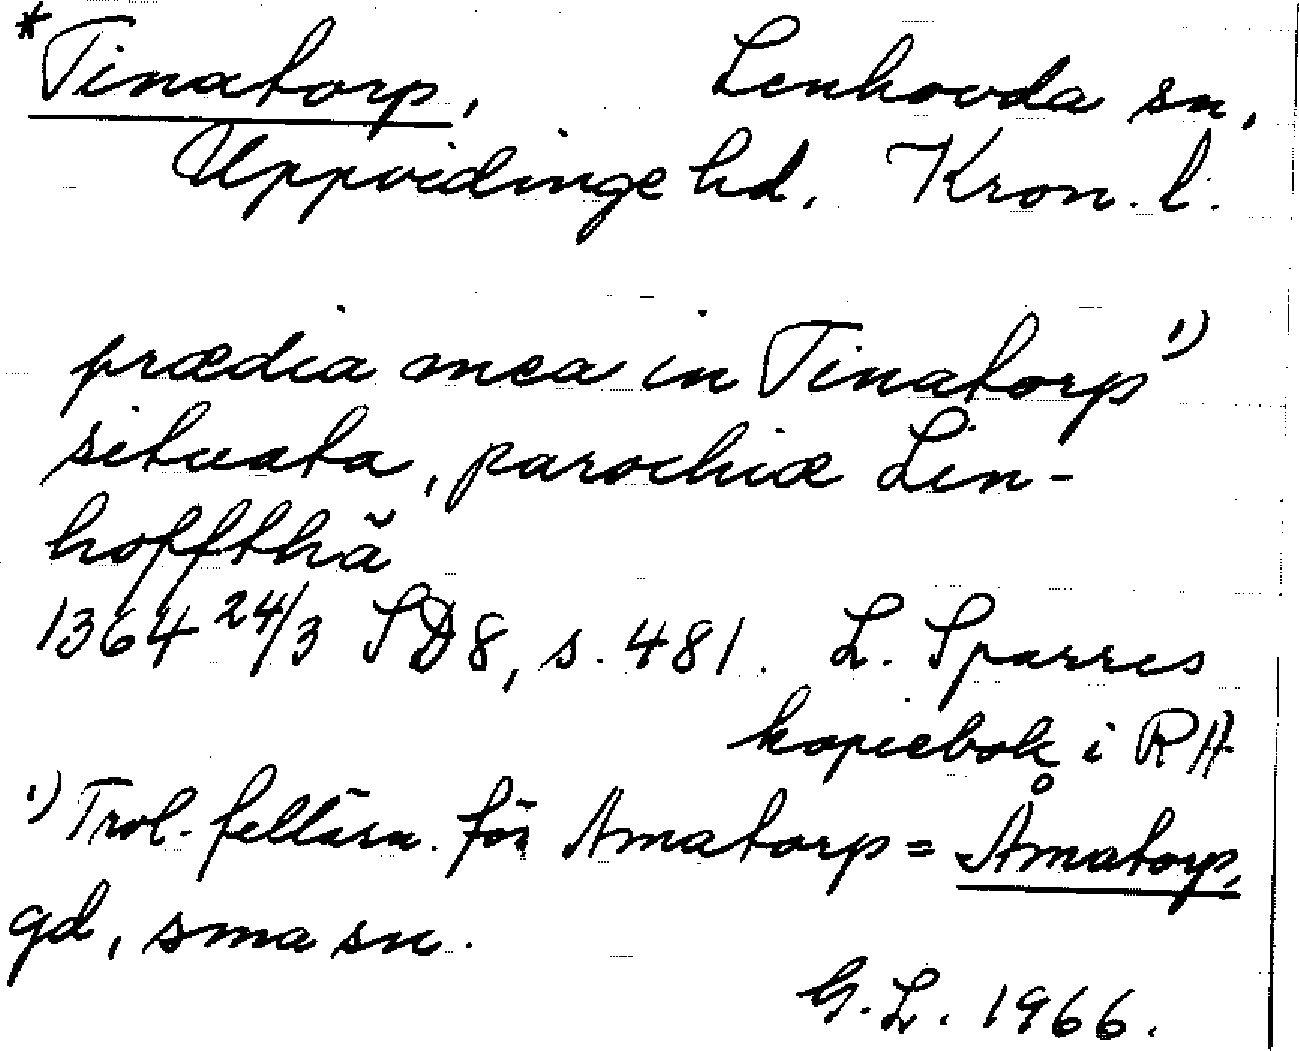 *Tinatorp, Lenhovda sn,
Uppvidinge hd. Kron. l.
prædia mea in Tinatorp ¹)
situata, parochiæ Lin-
hoffthă
1364 24/3 SD8, s. 481. L. Sparres
kopiebok i RA
¹) Trol. felläsn. för Amatorp = Åmatorp,
gd, sma sn.
G.L. 1966.